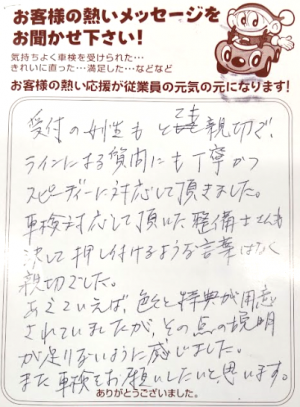 お客様の熱いメッセージを
お聞かせ下さい!
気持ちよく車検を受けられた…
きれいに直った…満足した…などなど
お客様の熱い応援が従業員の元気の元になります!
受付の女性もとても親切で、
ラインによる質問にも丁寧かつ
スピーディーに対応して頂きました。
車検対応して頂いた整備士さんも
決して押し付けるような言葉はなく
親切でした。
あえていえば、色々と特典が用意
されていましたが、その点の説明
が足りないように感じました。
また車検をお願いしたいと思います。
ありがとうございました。